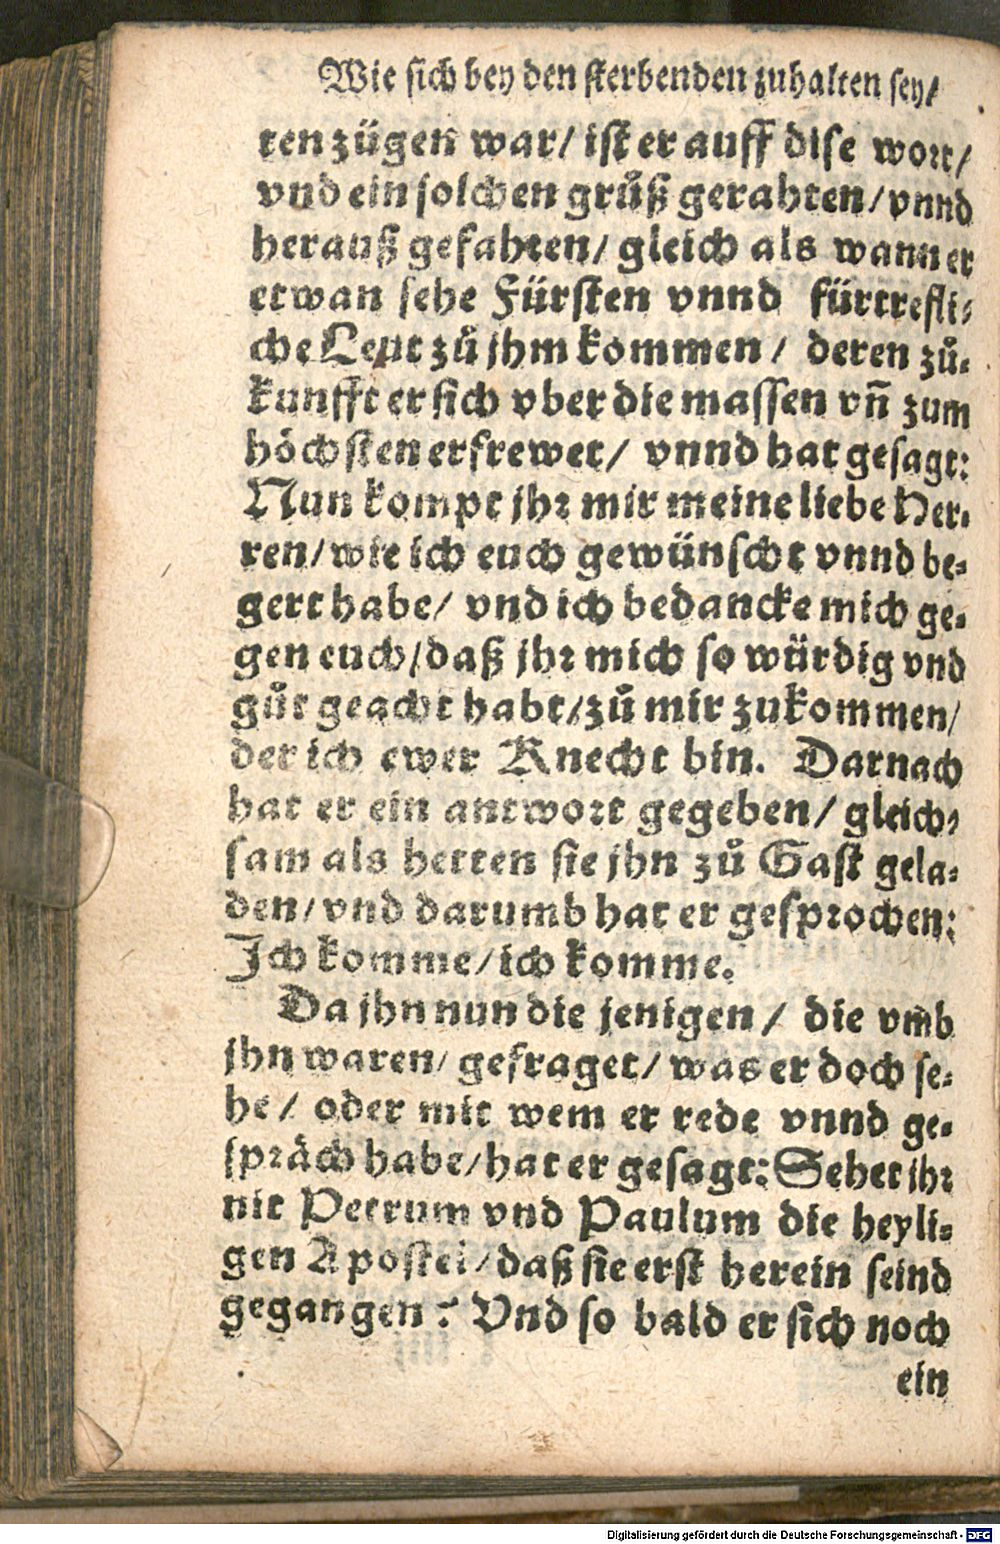 Wie sich bey den sterbenden zuhalten sey/
ten zügen war/ ist er auff dise wort/
vnd ein solchen grůß gerahten/ vnnd
herauß gefahren/ gleich als wann er
etwan sehe Fürsten vnnd fürtrefli-
che Leut zů jhm kommen/ deren zů-
kunfft er sich vber die massen vñ zum
höchsten erfrewet/ vnnd hat gesagt:
Nun kompt jhr mir meine liebe Her-
ren/ wie ich euch gewünscht vnnd be-
gert habe/ vnd ich bedancke mich ge-
gen euch/ daß jhr mich so würdig vnd
gůt geacht habt/ zů mir zukommen/
der ich ewer Knecht bin. Darnach
hat er ein antwort gegeben/ gleich-
sam als hetten sie jhn zů Gast gela-
den/ vnd darumb hat er gesprochen:
Ich komme/ ich komme.
Da jhn nun die jenigen/ die vmb
jhn waren/ gefraget/ was er doch se-
he/ oder mit wem er rede vnnd ge-
spräch habe/ hat er gesagt: Sehet jhr
nit Petrum vnd Paulum die heyli-
gen Apostel/ daß sie erst herein seind
gegangen? Vnd so bald er sich noch
ein
Digitalisierung gefördert durch die Deutsche Forschungsgemeinschaft - DFG